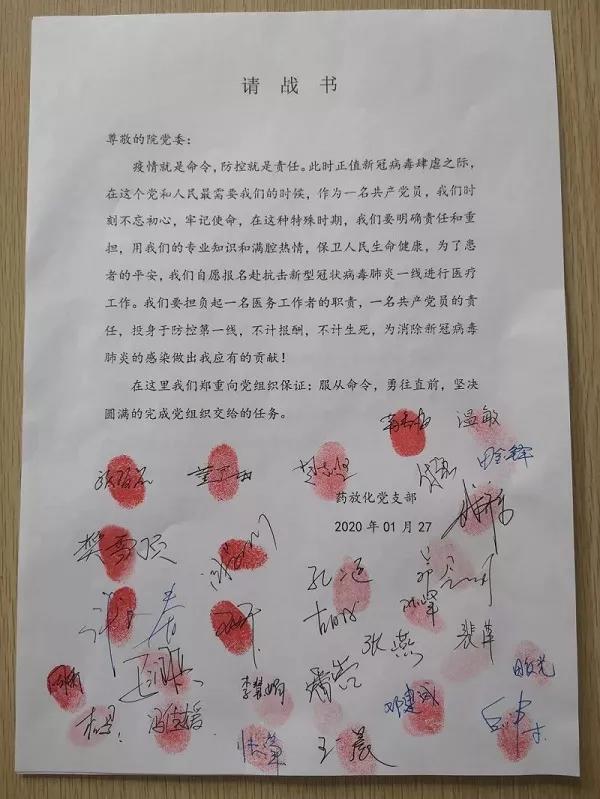 请战书
尊敬的院党委：
疫情就是命令，防控就是责任。此时正值新冠病毒肆虐之际，
在这个党和人民最需要我们的时候，作为一名共产党员，我们时
刻不忘初心，牢记使命，在这种特殊时期，我们要明确责任和重
担，用我们的专业知识和满腔热情，保卫人民生命健康，为了患
者的平安，我们自愿报名赴抗击新型冠状病毒肺炎一线进行医疗
工作。我们要担负起一名医务工作者的职责，一名共产党员的责
任，投身于防控第一线，不计报酬，不计生死，为消除新冠病毒
肺炎的感染做出我应有的贡献！
在这里我们郑重向党组织保证：服从命令，勇往直前，坚决
圆满的完成党组织交给的任务。
温敏
药放化党支部
2020 年 01 月 27
樊雪
张燕
邓建国
王晨